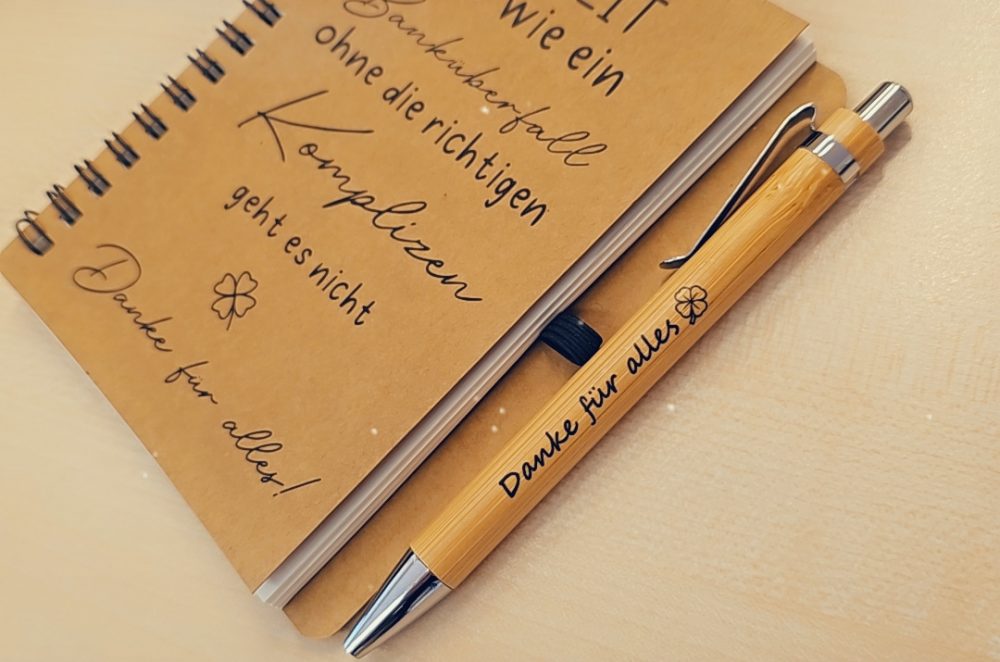 wie ein
Banküberfall
ohne die richtigen
Komplizen
geht es nicht
Danke für alles!
Danke für alles